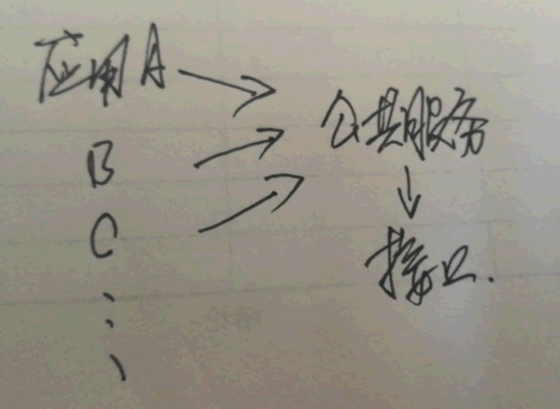 应用A
B
C
公共服务
接口.